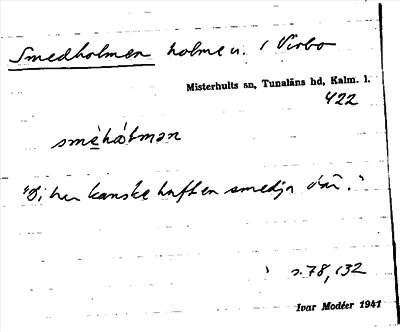 Smedholmen holme u. / Virbo
Misterhults sn, Tunaläns hd, Kalm. l.
422
"Di har kanske haft en smedja där."
s. 78, 132
Ivar Modéer 1941